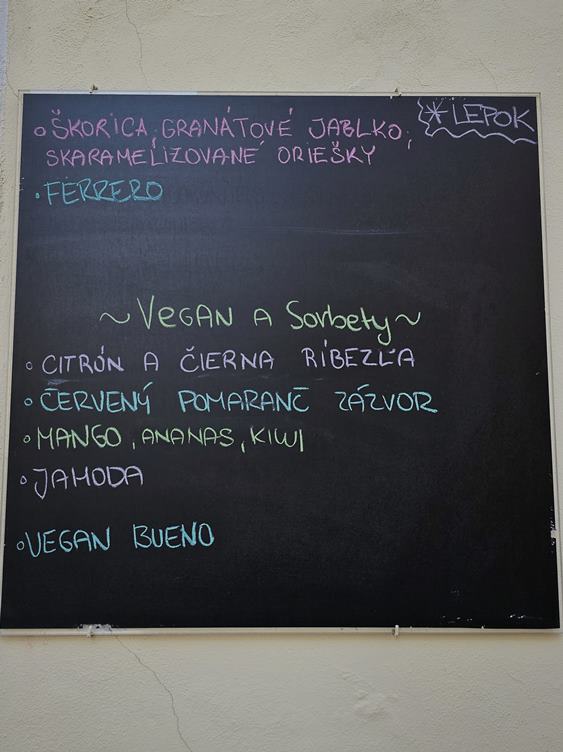 ŠKORICA, GRANÁTOVÉ JABLKO,
SKARAMELIZOVANÉ ORIEŠKY
* LEPOK
FERRERO
~ VEGAN A Sorbety ~
CITRÓN A ČIERNA RÍBEZĽA
ČERVENÝ POMARANČ ZÁZVOR
MANGO, ANANAS, KIWI
JAHODA
VEGAN BUENO